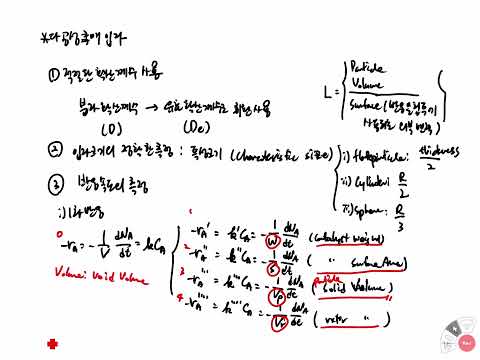 *다공성촉매 입자
① 적절한 확산계수 사용
분자확산계수 → 유효확산계수로 환산사용
(D) (De)
L = Particle Volume
Surface (반응물접촉이
② 입자크기의 정확한 측정 : 특성크기 (characteristic size)
i) flat particle : thickness/2
ii) Cylinder : R/2
iii) sphere : R/3
③ 반응속도의 측정
i) 1차 반응
0 -rA = -1/V dNA/dt = kCA
Volume : Void Volume
1 -rA' = k'CA = -1/W dNA/dt (catalyst weight)
2 -rA'' = k''CA = -1/S dNA/dt ( " surface Area )
3 -rA''' = k'''CA = -1/Vp dNA/dt ( particle solid Volume )
4 -rA'''' = k''''CA = -1/Vr dNA/dt ( "